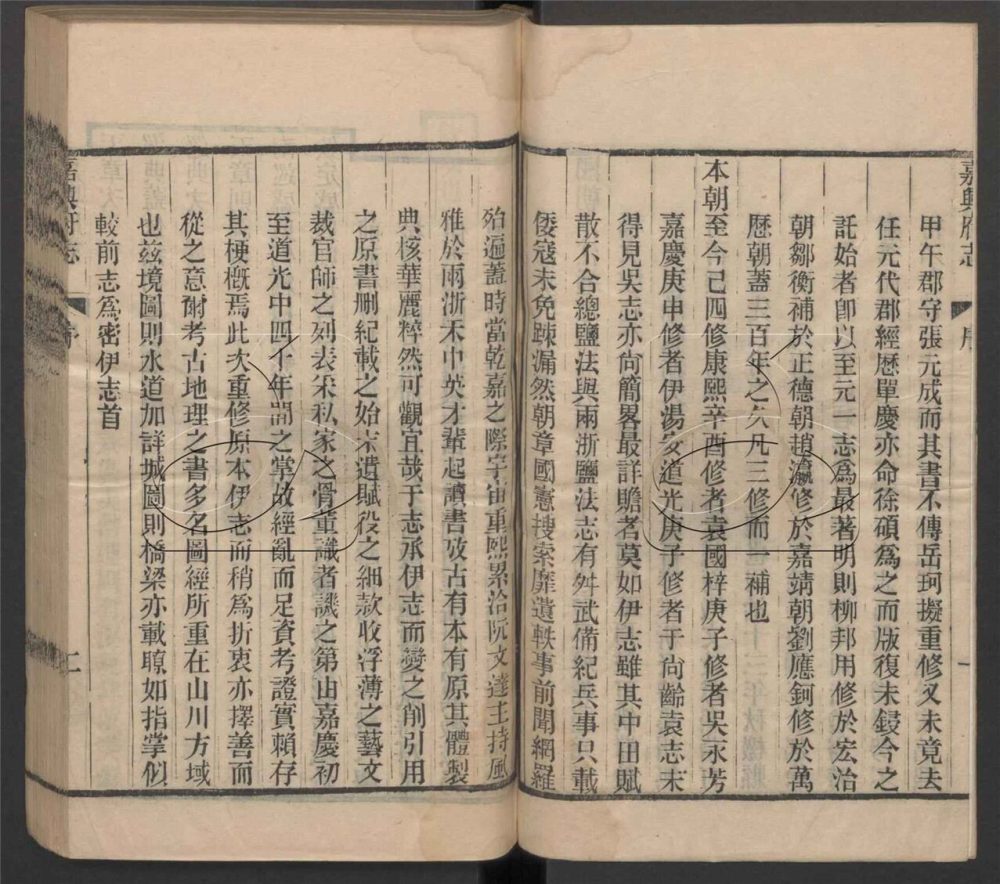 嘉興府志
序
一
甲午郡守張元成而其書不傳岳珂擬重修又未竟去
任元代郡經歷單慶亦命徐碩爲之而版復未鋟今之
託始者卽以至元一志爲最著明則柳邦用修於宏治
朝鄒衡補於正德朝趙瀛修於嘉靖朝劉應鈳修於萬
歷朝蓋三百年之久凡三修而一補也
本朝至今已四修康熙辛酉修者袁國梓庚子修者吳永芳
嘉慶庚申修者伊湯安道光庚子修者于尚齡袁志未
得見吳志亦尚簡畧最詳贍者莫如伊志雖其中田賦
散不合總鹽法與兩浙鹽法志有舛武備紀兵事只載
倭寇未免踈漏然朝章國憲搜索靡遺軼事前聞網羅
殆遍蓋時當乾嘉之際宇宙重熙累洽阮文達主持風
雅於兩浙禾中英才輩起讀書攷古有本有原其體製
典核華麗粹然可觀宜哉于志承伊志而變之削引用
之原書刪紀載之始末遺賦役之細款收浮薄之藝文
裁官師之列表宋私家之骨董識者譏之第由嘉慶初
至道光中四十年間之掌故經亂而足資考證實賴存
其梗概焉此次重修原本伊志而稍爲折衷亦擇善而
從之意爾考古地理之書多名圖經所重在山川方域
也茲境圖則水道加詳城圖則橋梁亦載瞭如指掌似
較前志爲密伊志首
嘉興府志
序
二